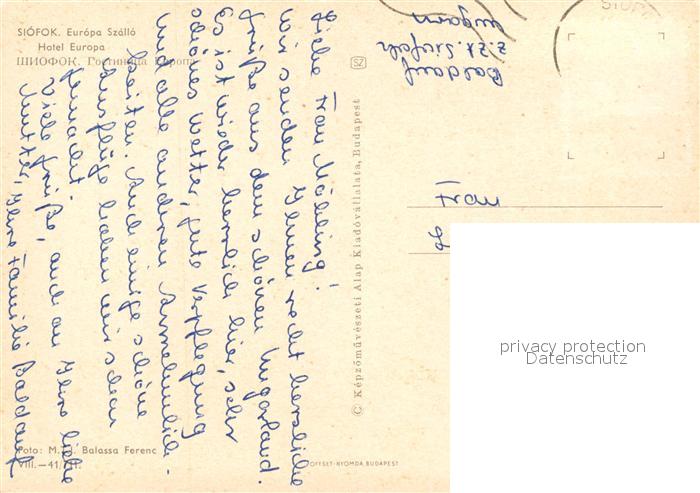 SIÓFOK. Európa Szálló
Hotel Europa
ШИОФОК. Гостиница Европа
Liebe Frau Mölling!
wir senden Ihnen recht herzliche
Grüße aus dem schönen Ungarland.
Es ist wieder herrlich hier, sehr
schönes Wetter, gute Verpflegung
und alle anderen Annehmlich-
keiten. Auch einige schöne
Ausflüge haben wir schon
gemacht.
Viele Grüße, auch an Ihre liebe
Mutter, Ihre Familie Baldauf
Foto: M. Balassa Ferenc
VIII.—41/
© Képzőművészeti Alap Kiadóvállalata, Budapest
SZ
OFFSET-NYOMDA, BUDAPEST
Baldauf
z. Zt. Siofok
Ungarn
SIÓF
Frau
privacy protection
Datenschutz